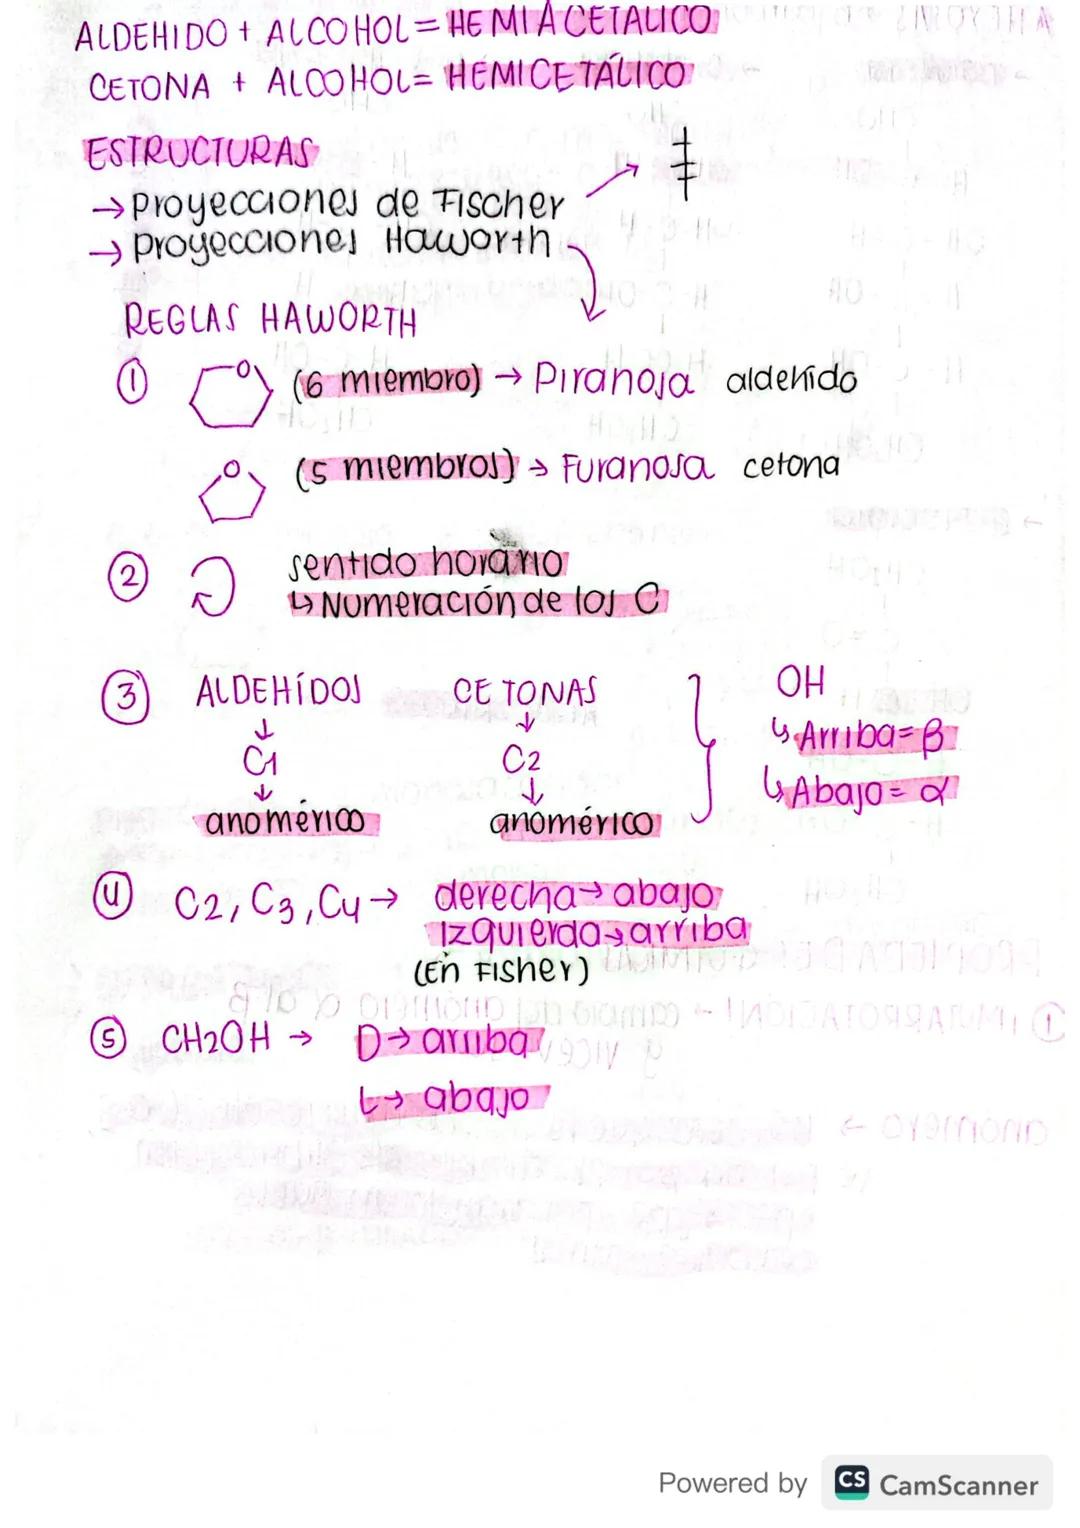 ALDEHIDO + ALCOHOL = HEMIACETALICO
CETONA + ALCOHOL = HEMICETÁLICO
ESTRUCTURAS
→ proyecciones de Fischer
→ proyecciones Haworth
REGLAS HAWORTH
① O (6 miembro) → Piranosa aldehido
O (5 miembros) → Furanosa cetona
② sentido horario
↳ Numeración de los C
③ ALDEHÍDOS CETONAS OH
↓ ↓ ↳ Arriba = β
C1 C2 ↳ Abajo = α
↓ ↓
anomérico anomérico
④ C2, C3, C4 → derecha → abajo
Izquierda → arriba
(En Fisher)
⑤ CH2OH → D → arriba
L → abajo
Powered by CS CamScanner